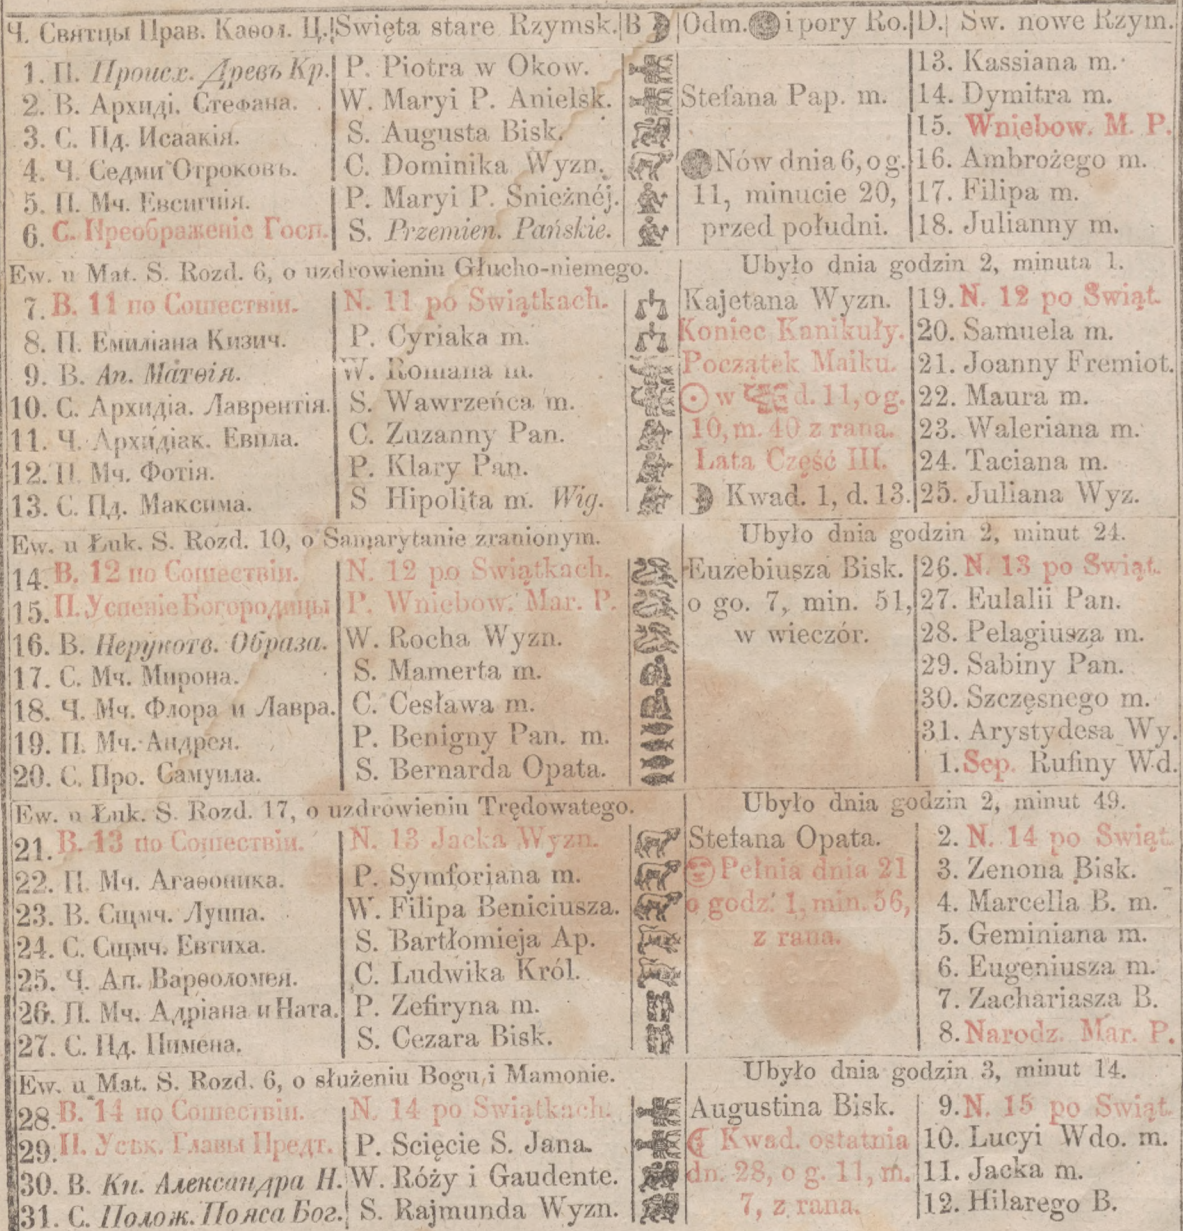 Ч. Святцы Прав. Каѳол. Ц. Swięta stare Rzymsk. B Odm. i pory Ro. D. Sw. nowe Rzym.
1. П. Происх. Древъ Кр. P. Piotra w Okow. 13. Kassiana m.
2. В. Архиді. Стефана. W. Maryi P. Anielsk. Stefana Pap. m. 14. Dymitra m.
3. С. Пд. Исаакія. S. Augusta Bisk. 15. Wniebow. M. P.
4. Ч. Седми Отроковъ. C. Dominika Wyzn. Nów dnia 6, o g. 16. Ambrożego m.
5. П. Мч. Евсигнія. P. Maryi P. Snieżnéj. 11, minucie 20, 17. Filipa m.
6. С. Преображеніе Госп. S. Przemien. Pańskie. przed południ. 18. Julianny m.
Ew. u Mat. S. Rozd. 6, o uzdrowieniu Głucho-niemego. Ubyło dnia godzin 2, minuta 1.
7. В. 11 по Сошествіи. N. 11 po Swiątkach. Kajetana Wyzn. 19. N. 12 po Swiąt.
8. П. Емиліана Кизич. P. Cyriaka m. Koniec Kanikuły. 20. Samuela m.
9. В. Ап. Матѳія. W. Romana m. Początek Maiku. 21. Joanny Fremiot.
10. С. Архидіа. Лаврентія. S. Wawrzeńca m. ☉ w d. 11, o g. 22. Maura m.
11. Ч. Архидіак. Евпла. C. Zuzanny Pan. 10, m. 40 z rana. 23. Waleriana m.
12. П. Мч. Фотія. P. Klary Pan. Lata Część III. 24. Taciana m.
13. С. Пд. Максима. S Hipolita m. Wig. Kwad. 1, d. 13. 25. Juliana Wyz.
Ew. u Łuk. S. Rozd. 10, o Samarytanie zranionym. Ubyło dnia godzin 2, minut 24.
14. В. 12 по Сошествіи. N. 12 po Swiątkach. Euzebiusza Bisk. 26. N. 13 po Swiąt.
15. П. Успеніе Богородицы P. Wniebow. Mar. P. o go. 7, min. 51, 27. Eulalii Pan.
16. В. Нерукотв. Образа. W. Rocha Wyzn. w wieczór. 28. Pelagiusza m.
17. С. Мч. Мирона. S. Mamerta m. 29. Sabiny Pan.
18. Ч. Мч. Флора и Лавра. C. Cesława m. 30. Szczęsnego m.
19. П. Мч. Андрея. P. Benigny Pan. m. 31. Arystydesa Wy.
20. С. Про. Самуила. S. Bernarda Opata. 1. Sep. Rufiny Wd.
Ew. u Łuk. S. Rozd. 17, o uzdrowieniu Trędowatego. Ubyło dnia godzin 2, minut 49.
21. В. 13 по Сошествіи. N. 13 Jacka Wyzn. Stefana Opata. 2. N. 14 po Swiąt.
22. П. Мч. Агаѳоника. P. Symforiana m. Pełnia dnia 21 3. Zenona Bisk.
23. В. Сщмч. Луппа. W. Filipa Beniciusza. o godz. 1, min. 56, 4. Marcella B. m.
24. С. Сщмч. Евтиха. S. Bartłomieja Ap. z rana. 5. Geminiana m.
25. Ч. Ап. Варѳоломея. C. Ludwika Król. 6. Eugeniusza m.
26. П. Мч. Адріана и Ната. P. Zefiryna m. 7. Zachariasza B.
27. С. Пд. Пимена. S. Cezara Bisk. 8. Narodz. Mar. P.
Ew. u Mat. S. Rozd. 6, o służeniu Bogu i Mamonie. Ubyło dnia godzin 3, minut 14.
28. В. 14 по Сошествіи. N. 14 po Swiątkach. Augustina Bisk. 9. N. 15 po Swiąt.
29. П. Усѣк. Главы Предт. P. Scięcie S. Jana. Kwad. ostatnia 10. Lucyi Wdo. m.
30. В. Кн. Александра Н. W. Róży i Gaudente. dn. 28, o g. 11, m. 11. Jacka m.
31. С. Полож. Пояса Бог. S. Rajmunda Wyzn. 7, z rana. 12. Hilarego B.